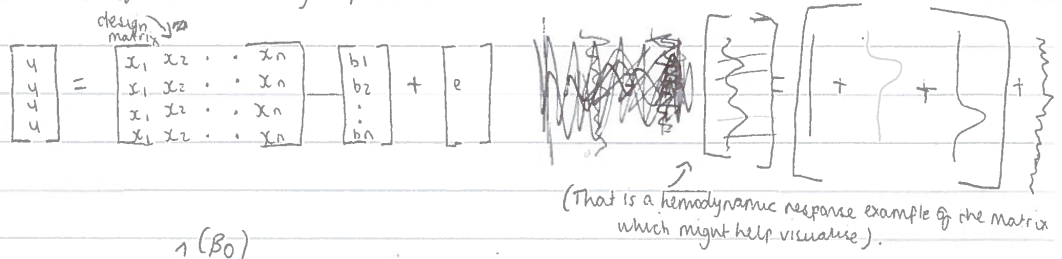 design
matrix
y = x1 x2 . . xn b1 + e
y x1 x2 . . xn b2
y x1 x2 . . xn .
y x1 x2 . . xn bn
= + + +
(That is a hemodynamic response example of the matrix
which might help visualise).
(β0)